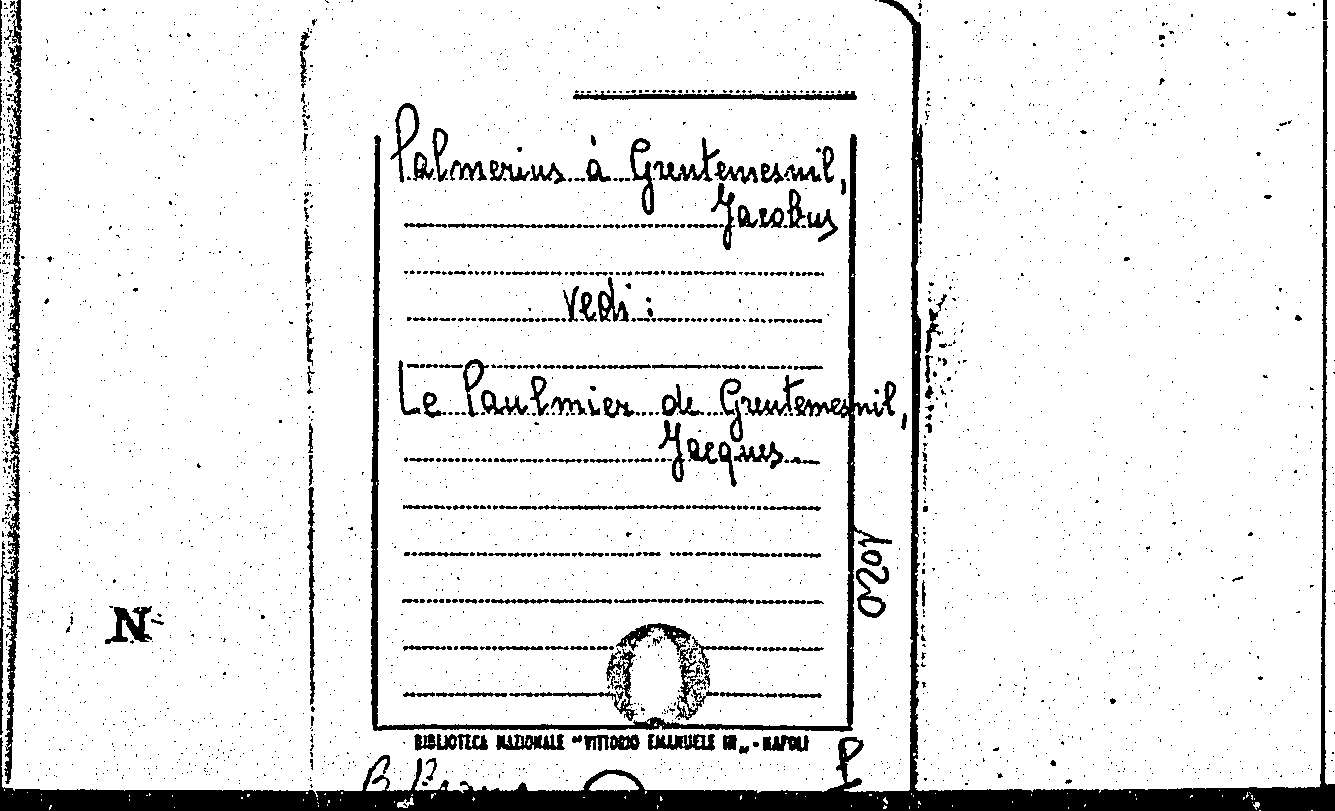 Palmerius à Grentemesnil,
Jacobus
vedi:
Le Paulmier de Grentemesnil,
Jacques.
N
BIBLIOTECA NAZIONALE "VITTORIO EMANUELE III" - NAPOLI